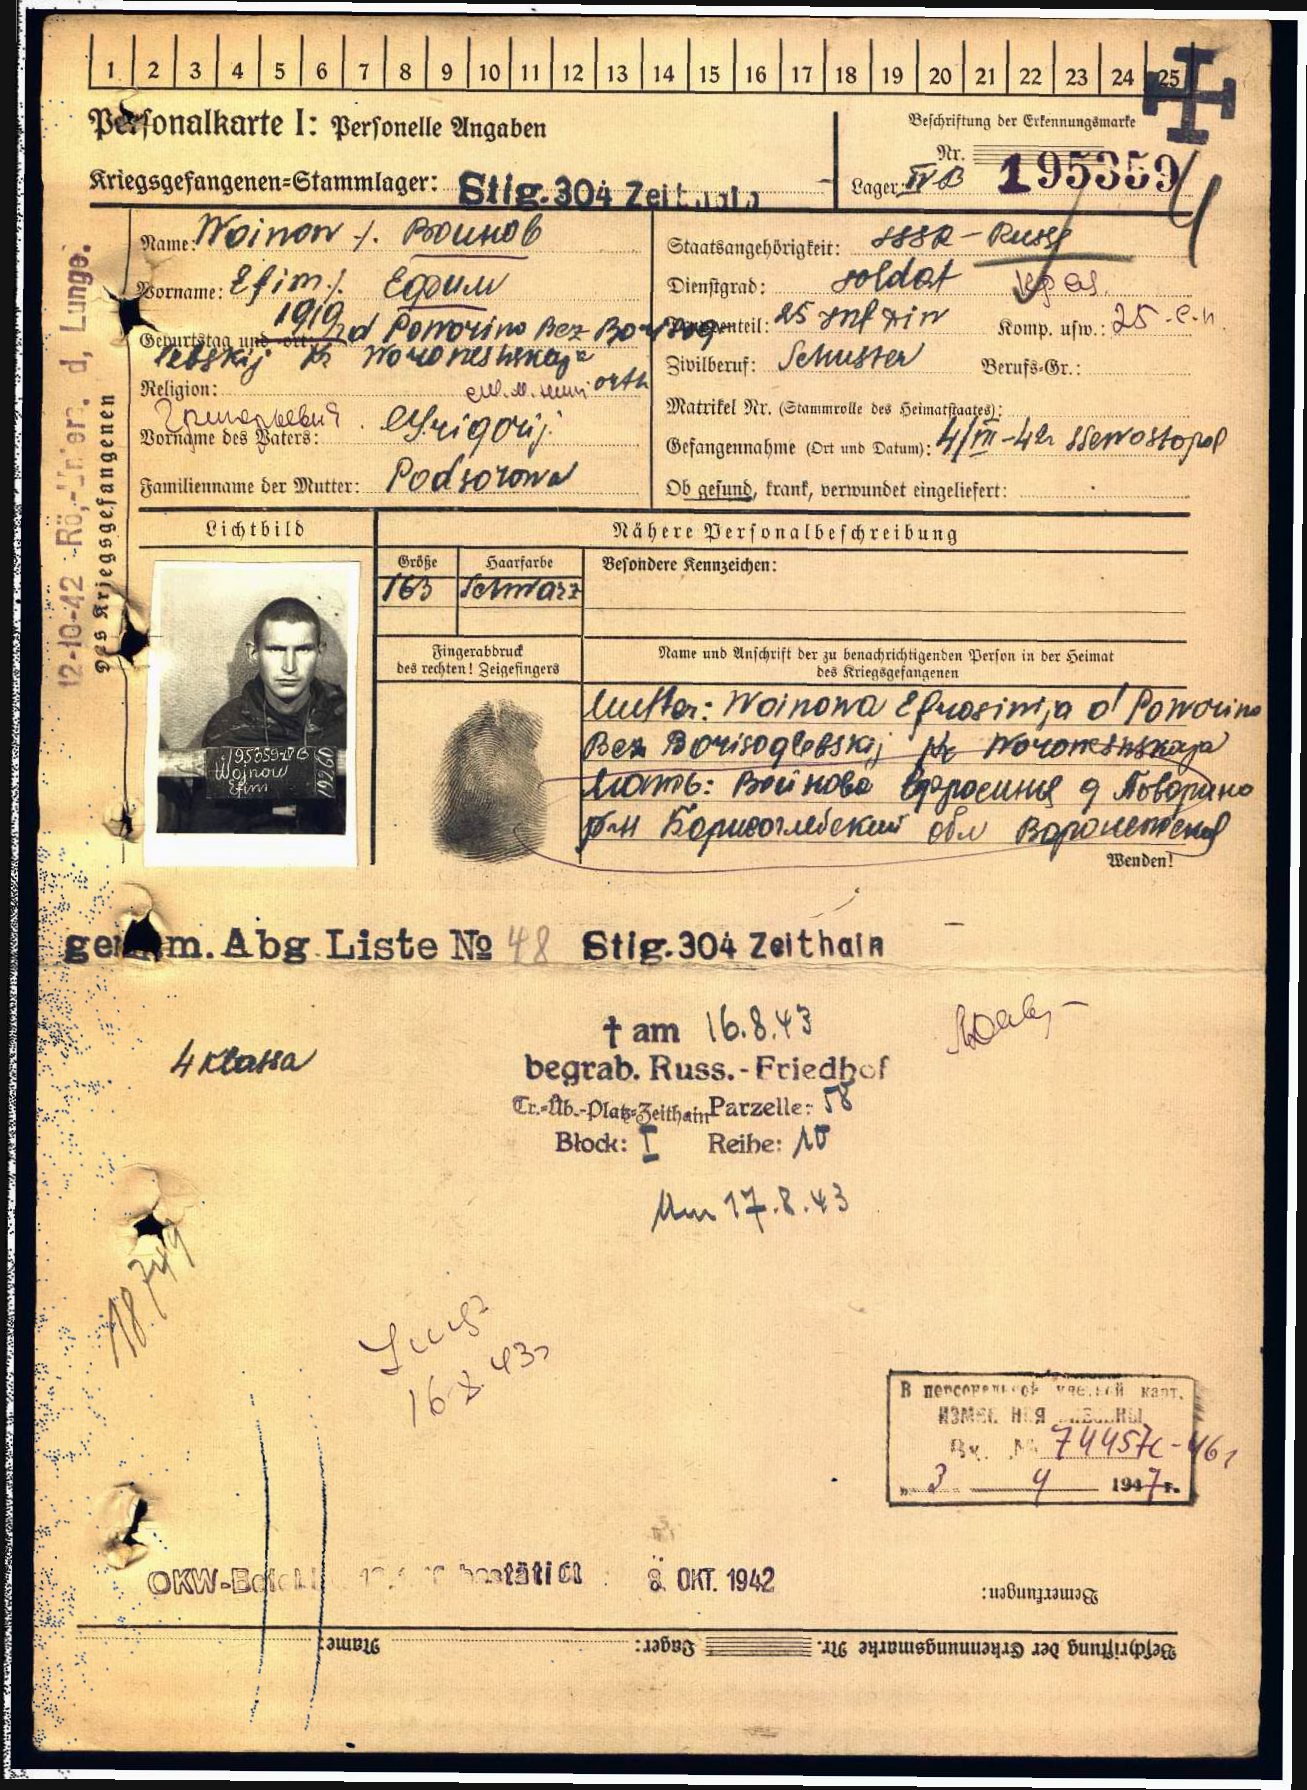 1 2 3 4 5 6 7 8 9 10 11 12 13 14 15 16 17 18 19 20 21 22 23 24 25
Personalkarte I: Personelle Angaben
Beschriftung der Erkennungsmarke
Kriegsgefangenen=Stammlager: Stlg. 304 Zeithain
Nr. 195359
Lager IV B
Name: Woinow /. Воинов
Vorname: Efim /. Ефим
Geburtstag und =ort: 1919 d Poworino Bez Borisog
lebskij Woroneshskaja
Religion: orth
Григорьевич
Vorname des Vaters: Grigorij
Familienname der Mutter: Podsorowa
Staatsangehörigkeit: SSSR - Russe
Dienstgrad: soldat
Truppenteil: 25 Inf Div Komp. usw.: 25
Zivilberuf: Schuster Berufs=Gr.:
Matrikel Nr. (Stammrolle des Heimatstaates):
Gefangennahme (Ort und Datum): 4/VII-42 Sewostopol
Ob gesund, krank, verwundet eingeliefert:
12-10-42 Rö,-Unters, d, Lunge.
Des Kriegsgefangenen
Lichtbild
Nähere Personalbeschreibung
Größe Haarfarbe Besondere Kennzeichen:
163 Schwarz
Fingerabdruck
des rechten! Zeigefingers
Name und Anschrift der zu benachrichtigenden Person in der Heimat
des Kriegsgefangenen
195359 IVB
Wojnow
Efim
19260
Mutter: Woinowa Efrosinija d Poworino
Bez Borisoglebskij Woroneshskaja
Мать: Войнова Ефросиния д Поворино
р-н Борисоглебский обл Воронежская
Wenden!
genom. Abg Liste No 48 Stlg. 304 Zeithain
4 Klassa
† am 16.8.43
begrab. Russ.-Friedhof
Tr.=Üb.-Platz=Zeithain Parzelle: 58
Block: I Reihe: 10
17.8.43
18749
16.8.43
В персональной учетной карт.
ИЗМЕНЕНИЯ ВНЕСЕНЫ
Вх. № 74457с-46г
„3 4 1947 г.
OKW-Befehl bestätigt
8. OKT. 1942
Bemerkungen:
Beschriftung der Erkennungsmarke Nr. Lager: Name: